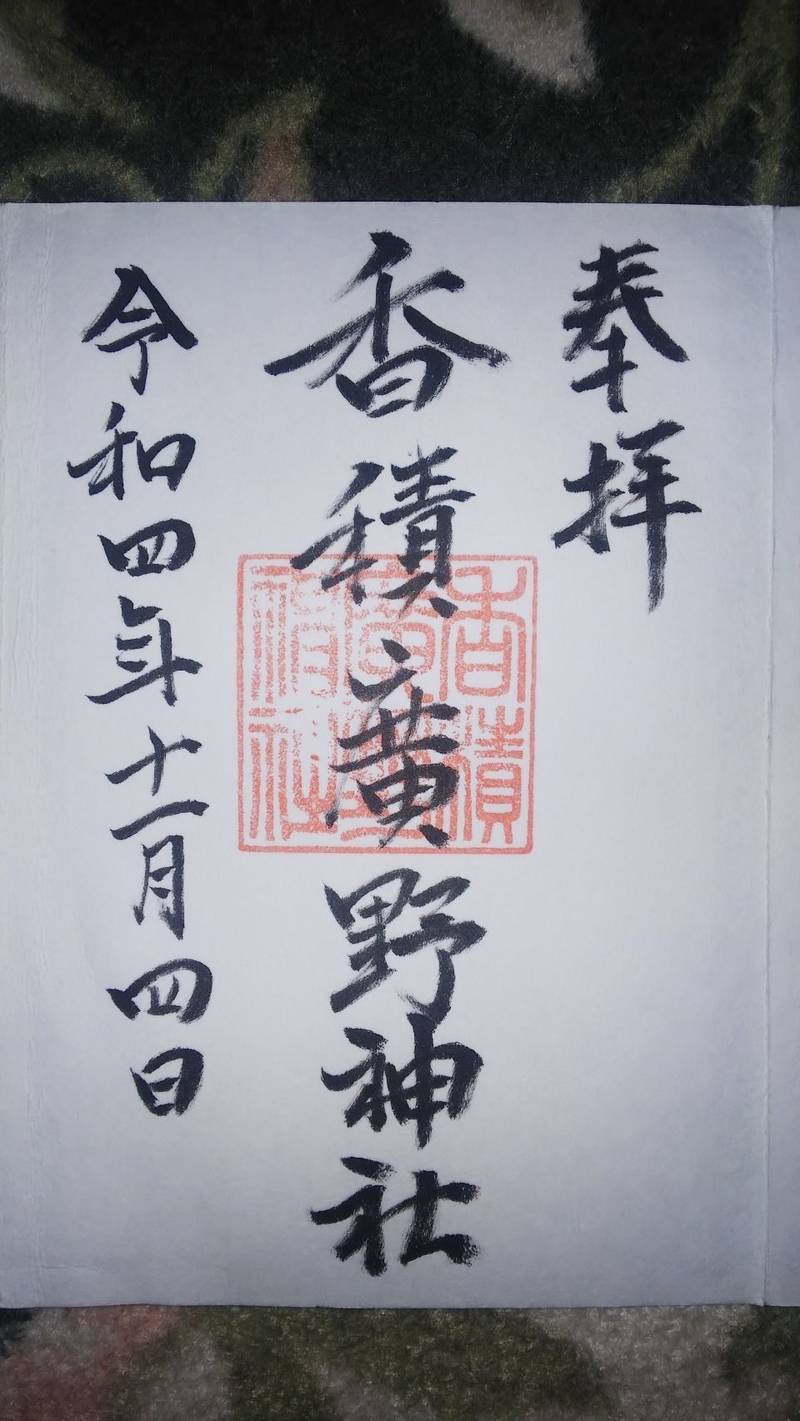 奉拝
香積廣野神社
令和四年十一月四日
香積廣野神社